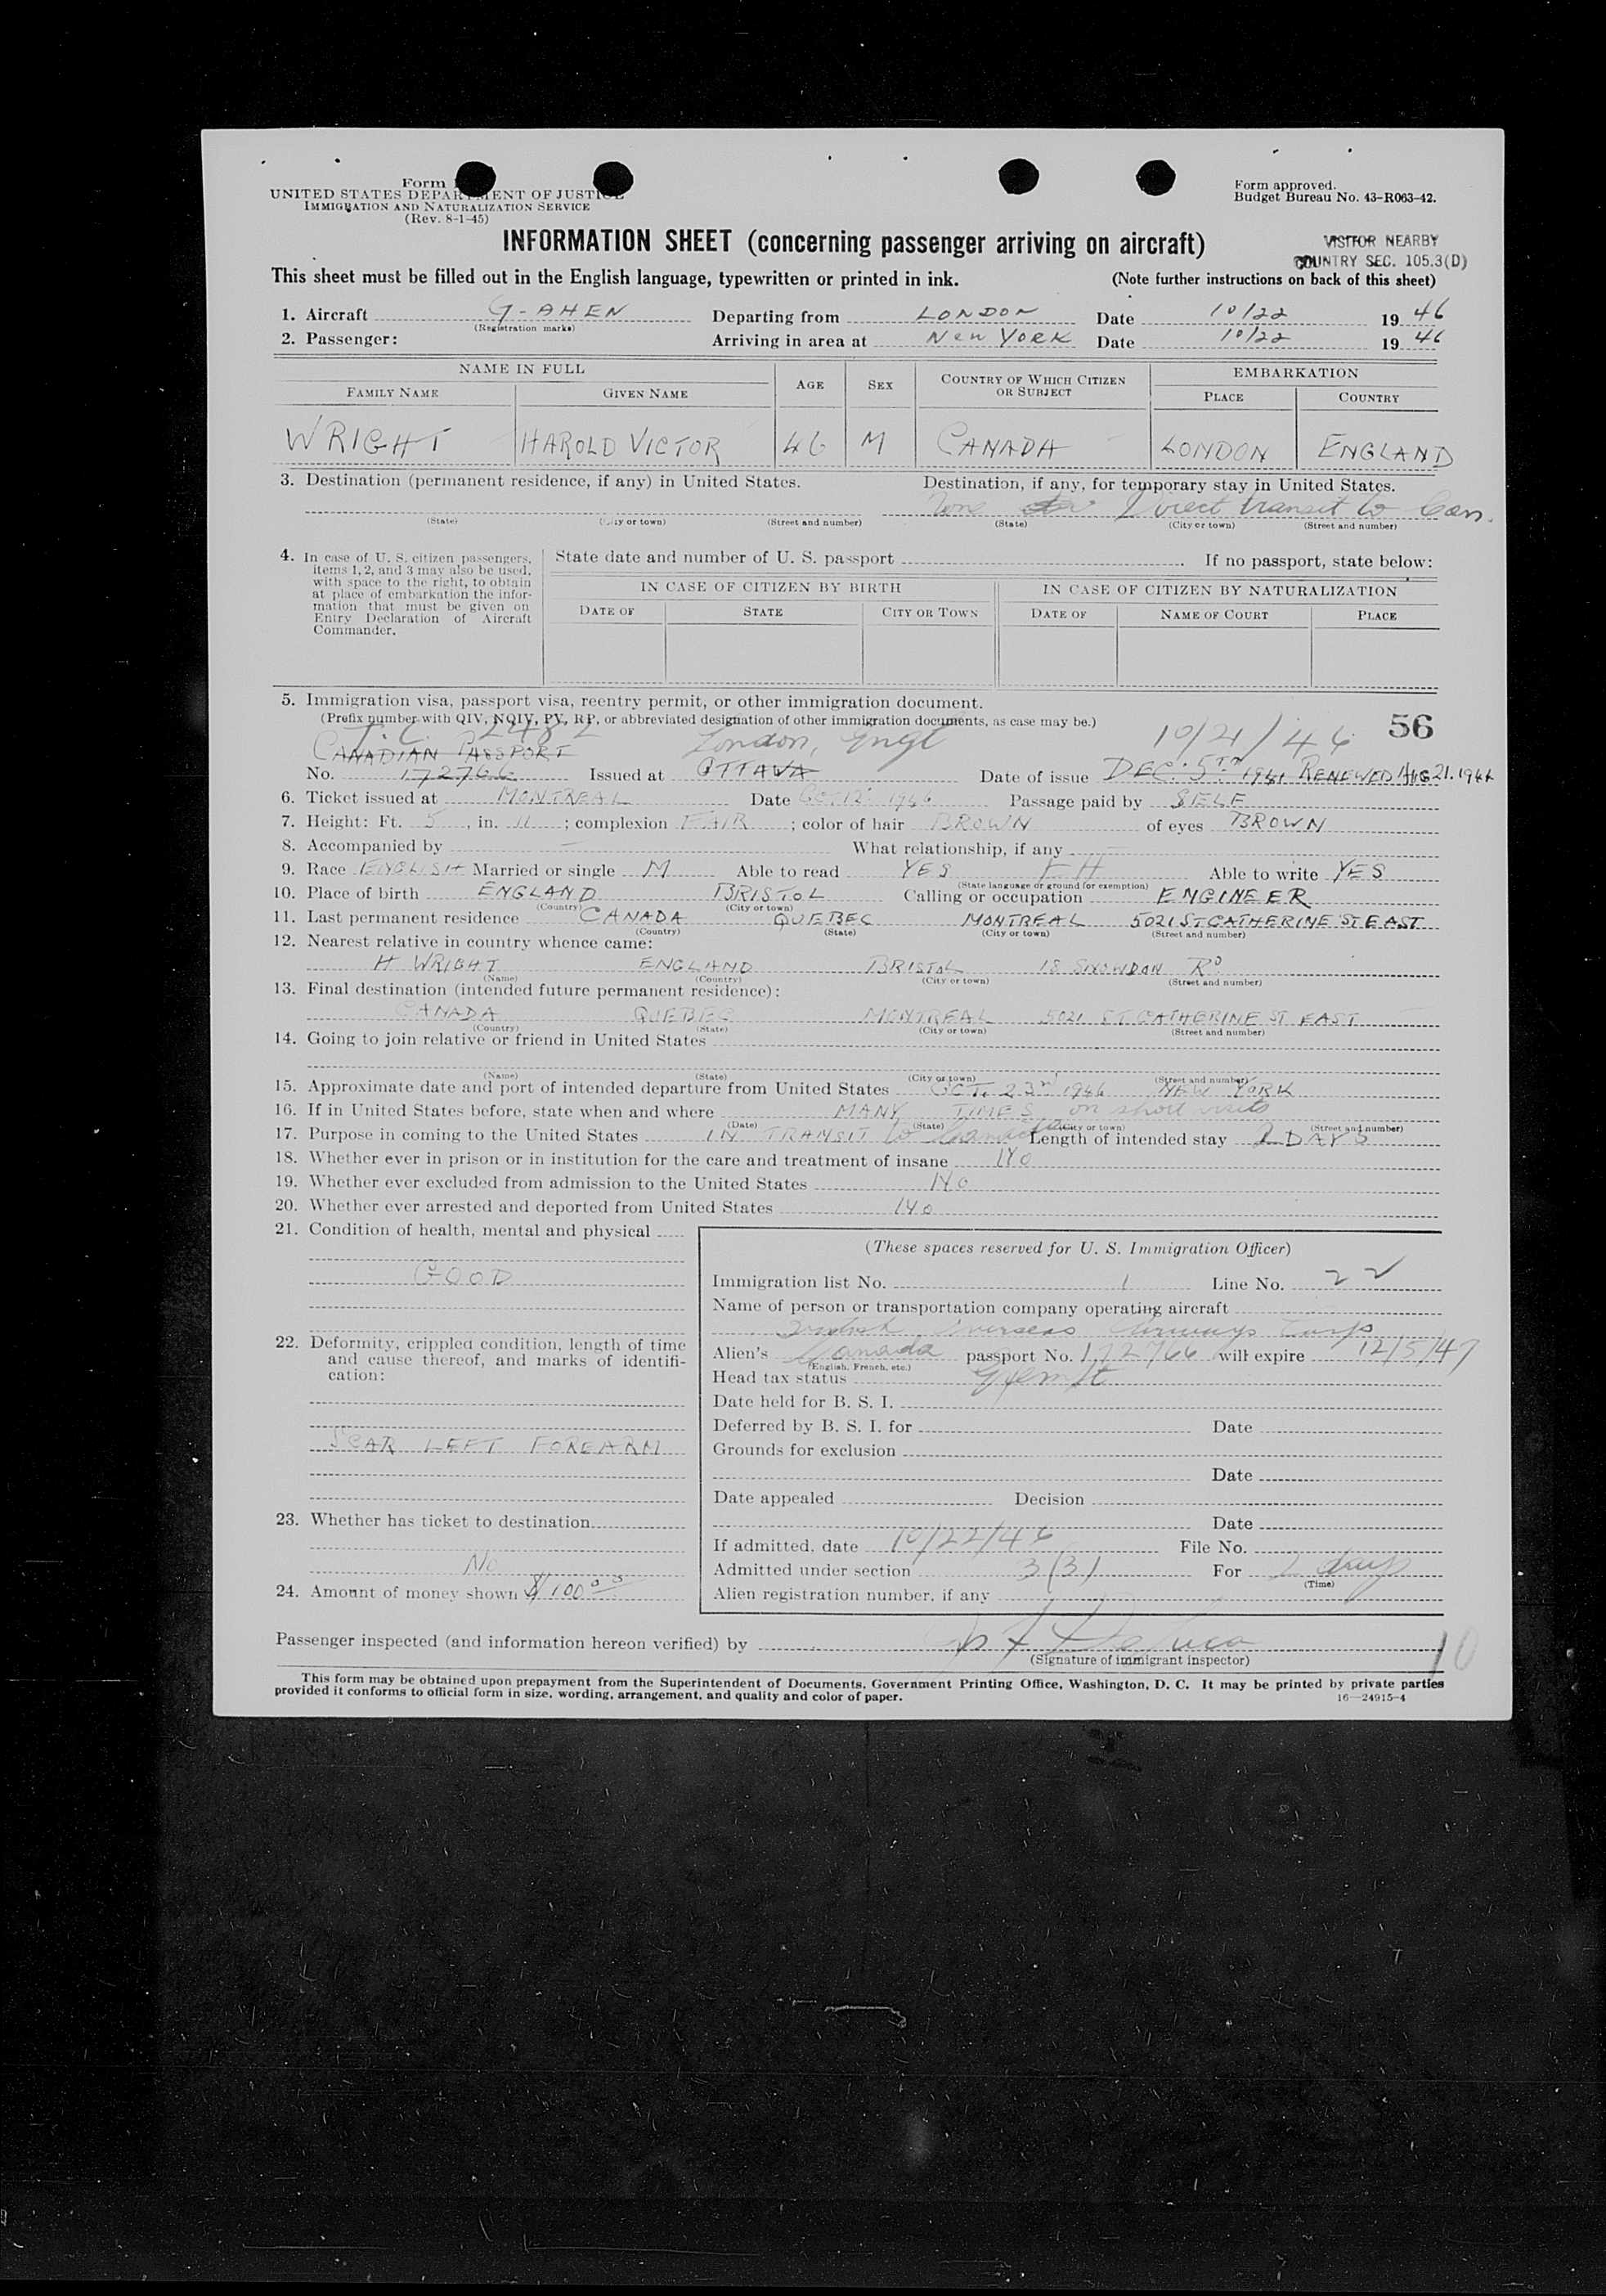 Form
UNITED STATES DEPARTMENT OF JUSTICE
IMMIGRATION AND NATURALIZATION SERVICE
(Rev. 8-1-45)
Form approved.
Budget Bureau No. 43-R063-42.
INFORMATION SHEET (concerning passenger arriving on aircraft)
VISITOR NEARBY
COUNTRY SEC. 105.3(D)
This sheet must be filled out in the English language, typewritten or printed in ink. (Note further instructions on back of this sheet)
1. Aircraft G-AHEN Departing from LONDON Date 10/22 19 46
(Registration marks)
2. Passenger: Arriving in area at NEW YORK Date 10/22 19 46
NAME IN FULL AGE SEX COUNTRY OF WHICH CITIZEN OR SUBJECT EMBARKATION
FAMILY NAME GIVEN NAME PLACE COUNTRY
WRIGHT HAROLD VICTOR 46 M CANADA LONDON ENGLAND
3. Destination (permanent residence, if any) in United States. Destination, if any, for temporary stay in United States.
None Direct transit to Can.
(State) (City or town) (Street and number) (State) (City or town) (Street and number)
4. In case of U. S. citizen passengers, items 1, 2, and 3 may also be used, with space to the right, to obtain at place of embarkation the information that must be given on Entry Declaration of Aircraft Commander.
State date and number of U. S. passport If no passport, state below:
IN CASE OF CITIZEN BY BIRTH IN CASE OF CITIZEN BY NATURALIZATION
DATE OF STATE CITY OR TOWN DATE OF NAME OF COURT PLACE
5. Immigration visa, passport visa, reentry permit, or other immigration document.
(Prefix number with QIV, NQIV, PV, RP, or abbreviated designation of other immigration documents, as case may be.)
T.C. 2482 London, Engl 10/21/46 56
CANADIAN PASSPORT
No. 172766 Issued at OTTAWA Date of issue DEC. 5TH 1941 RENEWED AUG 21. 1944
6. Ticket issued at MONTREAL Date OCT 12 1946 Passage paid by SELF
7. Height: Ft. 5, in. 11; complexion FAIR; color of hair BROWN of eyes BROWN
8. Accompanied by — What relationship, if any —
9. Race ENGLISH Married or single M Able to read YES Able to write YES
(State language or ground for exemption)
10. Place of birth ENGLAND BRISTOL Calling or occupation ENGINEER
(Country) (City or town)
11. Last permanent residence CANADA QUEBEC MONTREAL 5021 ST. CATHERINE ST EAST
(Country) (State) (City or town) (Street and number)
12. Nearest relative in country whence came:
H WRIGHT ENGLAND BRISTOL 18 SNOWDON RD
(Name) (Country) (City or town) (Street and number)
13. Final destination (intended future permanent residence):
CANADA QUEBEC MONTREAL 5021 ST. CATHERINE ST EAST
(Country) (State) (City or town) (Street and number)
14. Going to join relative or friend in United States
(Name) (State) (City or town) (Street and number)
15. Approximate date and port of intended departure from United States OCT. 23rd 1946 NEW YORK
16. If in United States before, state when and where MANY TIMES on short visits
(Date) (State) (City or town) (Street and number)
17. Purpose in coming to the United States IN TRANSIT to Canada Length of intended stay 2 DAYS
18. Whether ever in prison or in institution for the care and treatment of insane NO
19. Whether ever excluded from admission to the United States NO
20. Whether ever arrested and deported from United States NO
21. Condition of health, mental and physical
GOOD
22. Deformity, crippled condition, length of time and cause thereof, and marks of identification:
SCAR LEFT FOREARM
23. Whether has ticket to destination
No
24. Amount of money shown $100 00
(These spaces reserved for U. S. Immigration Officer)
Immigration list No. 1 Line No. 22
Name of person or transportation company operating aircraft
British Overseas Airways Corp
Alien's Canada passport No. 172766 will expire 12/5/47
(English, French, etc.)
Head tax status Exempt
Date held for B. S. I.
Deferred by B. S. I. for Date
Grounds for exclusion
Date
Date appealed Decision
Date
If admitted, date 10/22/46 File No.
Admitted under section 3(3) For 2 days
(Time)
Alien registration number, if any
Passenger inspected (and information hereon verified) by
(Signature of immigrant inspector)
10
This form may be obtained upon prepayment from the Superintendent of Documents, Government Printing Office, Washington, D. C. It may be printed by private parties
provided it conforms to official form in size, wording, arrangement, and quality and color of paper.
16—24915-4